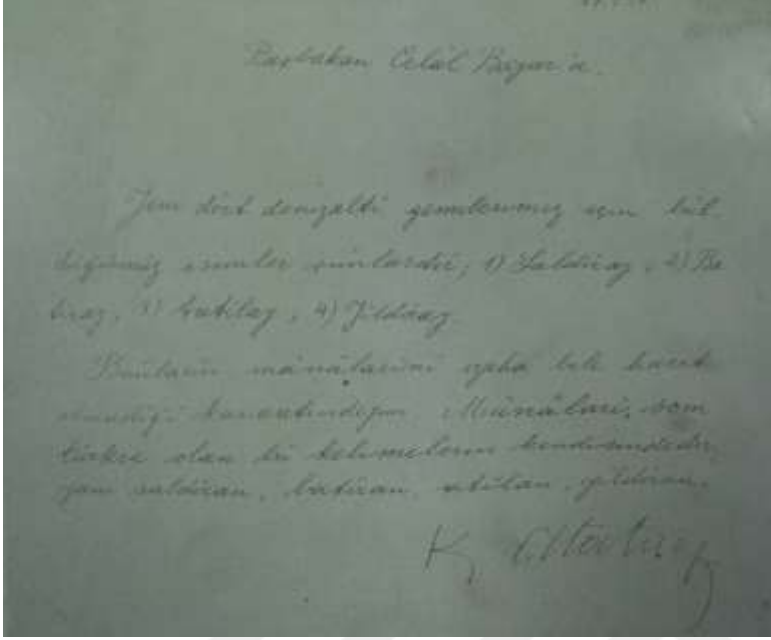 Başbakan Celâl Bayar'a.
Yeni dört denizaltı gemilerimiz için bul
duğumuz isimler şunlardır; 1) Saldıray, 2) Ba
tıray, 3) Atılay, 4) Yıldıray
Bunların mânâlarını izaha bile hacet
olmadığı kanaatindeyim Mânâları, som
türkçe olan bu kelimelerin kendisindedir,
yani saldıran, batıran, atılan, yıldıran.
K. Atatürk